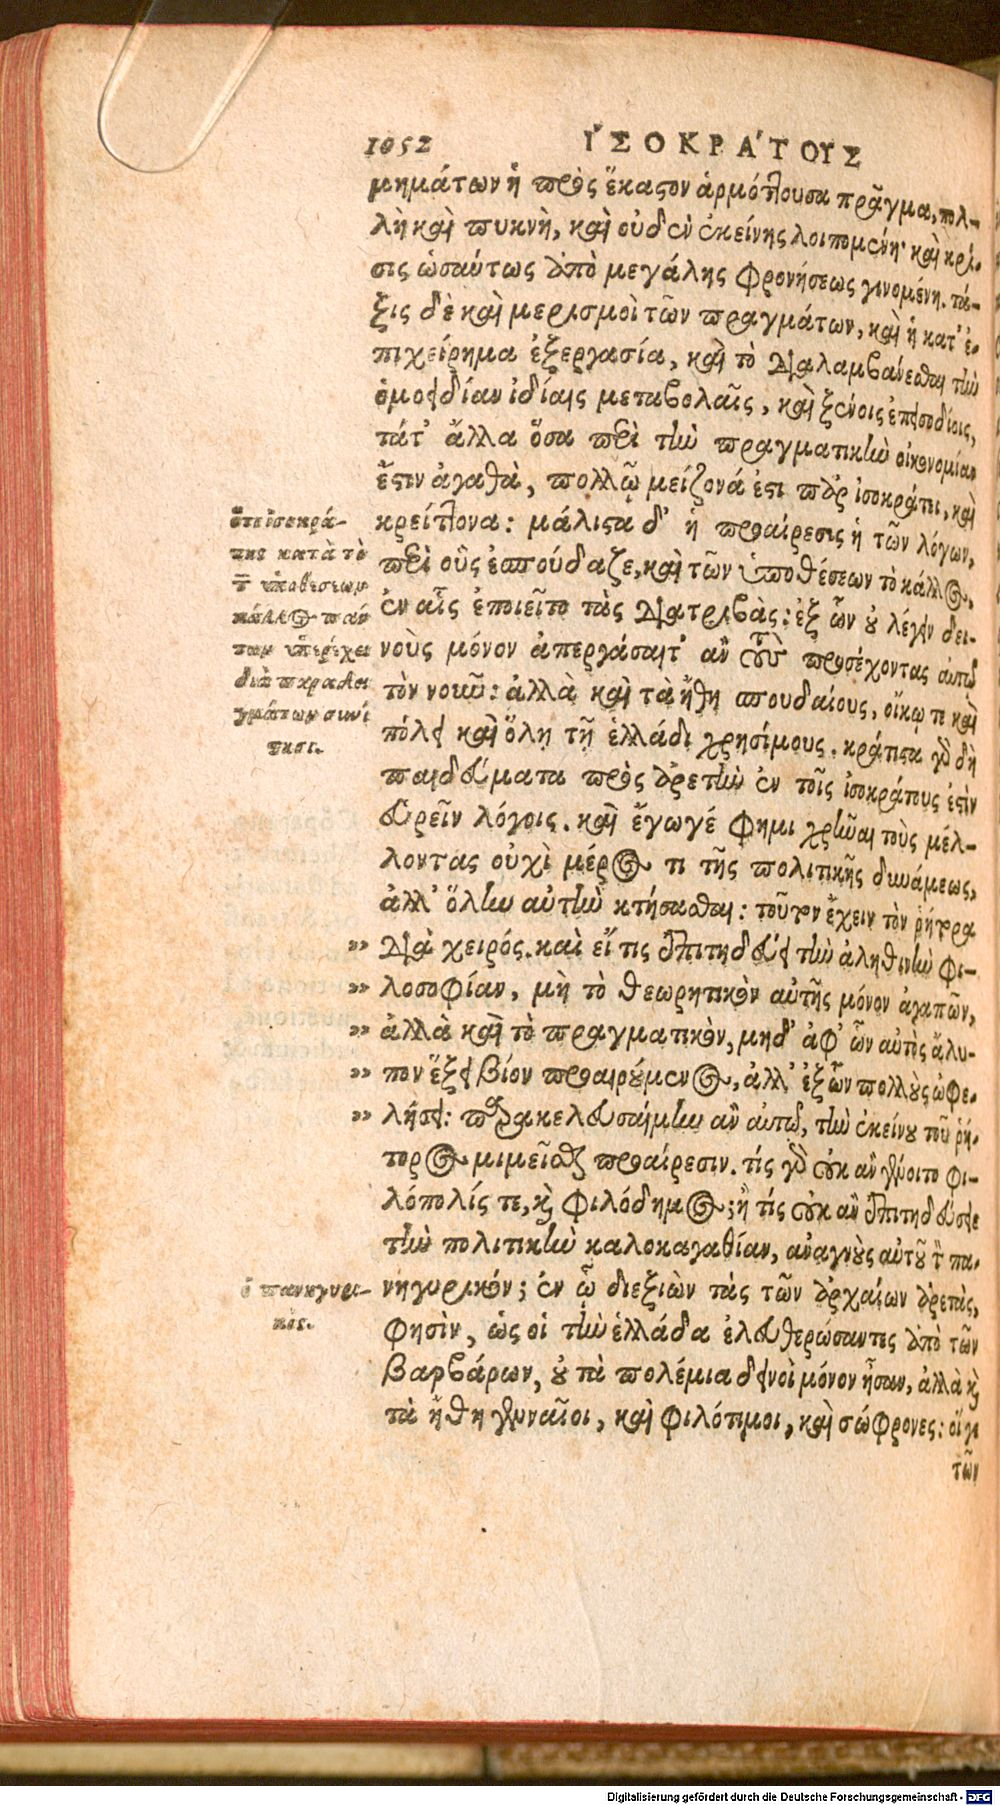 1052 ἸΣΟΚΡΆΤΟΥΣ
μημάτων ἡ πρὸς ἕκαστον ἁρμόττουσα πρᾶγμα, πολ-
λὴ καὶ πυκνὴ, καὶ οὐδὲν ἐκείνης λοιπομένη· καὶ κρί-
σις ὡσαύτως ἀπὸ μεγάλης φρονήσεως γινομένη. τά-
ξις δὲ καὶ μερισμοὶ τῶν πραγμάτων, καὶ ἡ κατ' ἐ-
πιχείρημα ἐξεργασία, καὶ τὸ διαλαμβάνεσθαι τὴν
ὁμοείδίαν ἰδίαις μεταβολαῖς, καὶ ξένοις ἐπεισοδίοις,
τά τ' ἄλλα ὅσα περὶ τὴν πραγματικὴν οἰκονομίαν
ἔστιν ἀγαθὰ, πολλῷ μείζονά ἐστι παρ' ἰσοκράτει, καὶ
κρείττονα: μάλιστα δ' ἡ προαίρεσις ἡ τῶν λόγων,
περὶ οὓς ἐσπούδαζε, καὶ τῶν ὑποθέσεων τὸ κάλλος,
ἐν αἷς ἐποιεῖτο τὰς διατριβὰς: ἐξ ὧν οὐ λέγειν δει-
νοὺς μόνον ἀπεργάσαιτ' ἂν τοὺς προσέχοντας αὐτῷ
τὸν νοῦν: ἀλλὰ καὶ τὰ ἤθη σπουδαίους, οἴκῳ τε καὶ
πόλει καὶ ὅλῃ τῇ ἑλλάδι χρησίμους. κράτιστα γὰρ δὴ
παιδεύματα πρὸς ἀρετὴν ἐν τοῖς ἰσοκράτους ἐστὶν
εὑρεῖν λόγοις. καὶ ἔγωγέ φημι χρῆναι τοὺς μέλ-
λοντας οὐχὶ μέρος τι τῆς πολιτικῆς δυνάμεως,
ἀλλ' ὅλην αὐτὴν κτήσασθαι: τοῦτον ἔχειν τὸν ῥήτορα
» διὰ χειρός. καὶ εἴ τις ἐπιτηδεύει τὴν ἀληθινὴν φι-
» λοσοφίαν, μὴ τὸ θεωρητικὸν αὐτῆς μόνον ἀγαπῶν,
» ἀλλὰ καὶ τὸ πραγματικὸν, μηδ' ἀφ' ὧν αὐτὸς ἄλυ-
» πον ἕξει βίον προαιρούμενος, ἀλλ' ἐξ ὧν πολλοὺς ὠφε-
» λήσει: παρακελευσαίμην ἂν αὐτῷ, τὴν ἐκείνου τοῦ ῥή-
τορος μιμεῖσθαι προαίρεσιν. τίς γὰρ οὐκ ἂν γένοιτο φι-
λόπολίς τε, καὶ φιλόδημος; ἢ τίς οὐκ ἂν ἐπιτηδεύσειε
τὴν πολιτικὴν καλοκαγαθίαν, ἀναγνοὺς αὐτοῦ τὸν πα-
νηγυρικόν; ἐν ᾧ διεξιὼν τὰς τῶν ἀρχαίων ἀρετὰς,
φησὶν, ὡς οἱ τὴν ἑλλάδα ἐλευθερώσαντες ἀπὸ τῶν
βαρβάρων, οὐ τὰ πολέμια δεινοὶ μόνον ἦσαν, ἀλλὰ καὶ
τὰ ἤθη γενναῖοι, καὶ φιλότιμοι, καὶ σώφρονες: οἵ γε
τῶν
ὅτι ἰσοκρά-
της κατὰ τὸ
τῶν ὑποθέσεων
κάλλος πάν
των ὑπερέχει
διὰ παραδει
γμάτων συνί
στησι.
ὁ πανηγυρι-
κός.
Digitalisierung gefördert durch die Deutsche Forschungsgemeinschaft - DFG